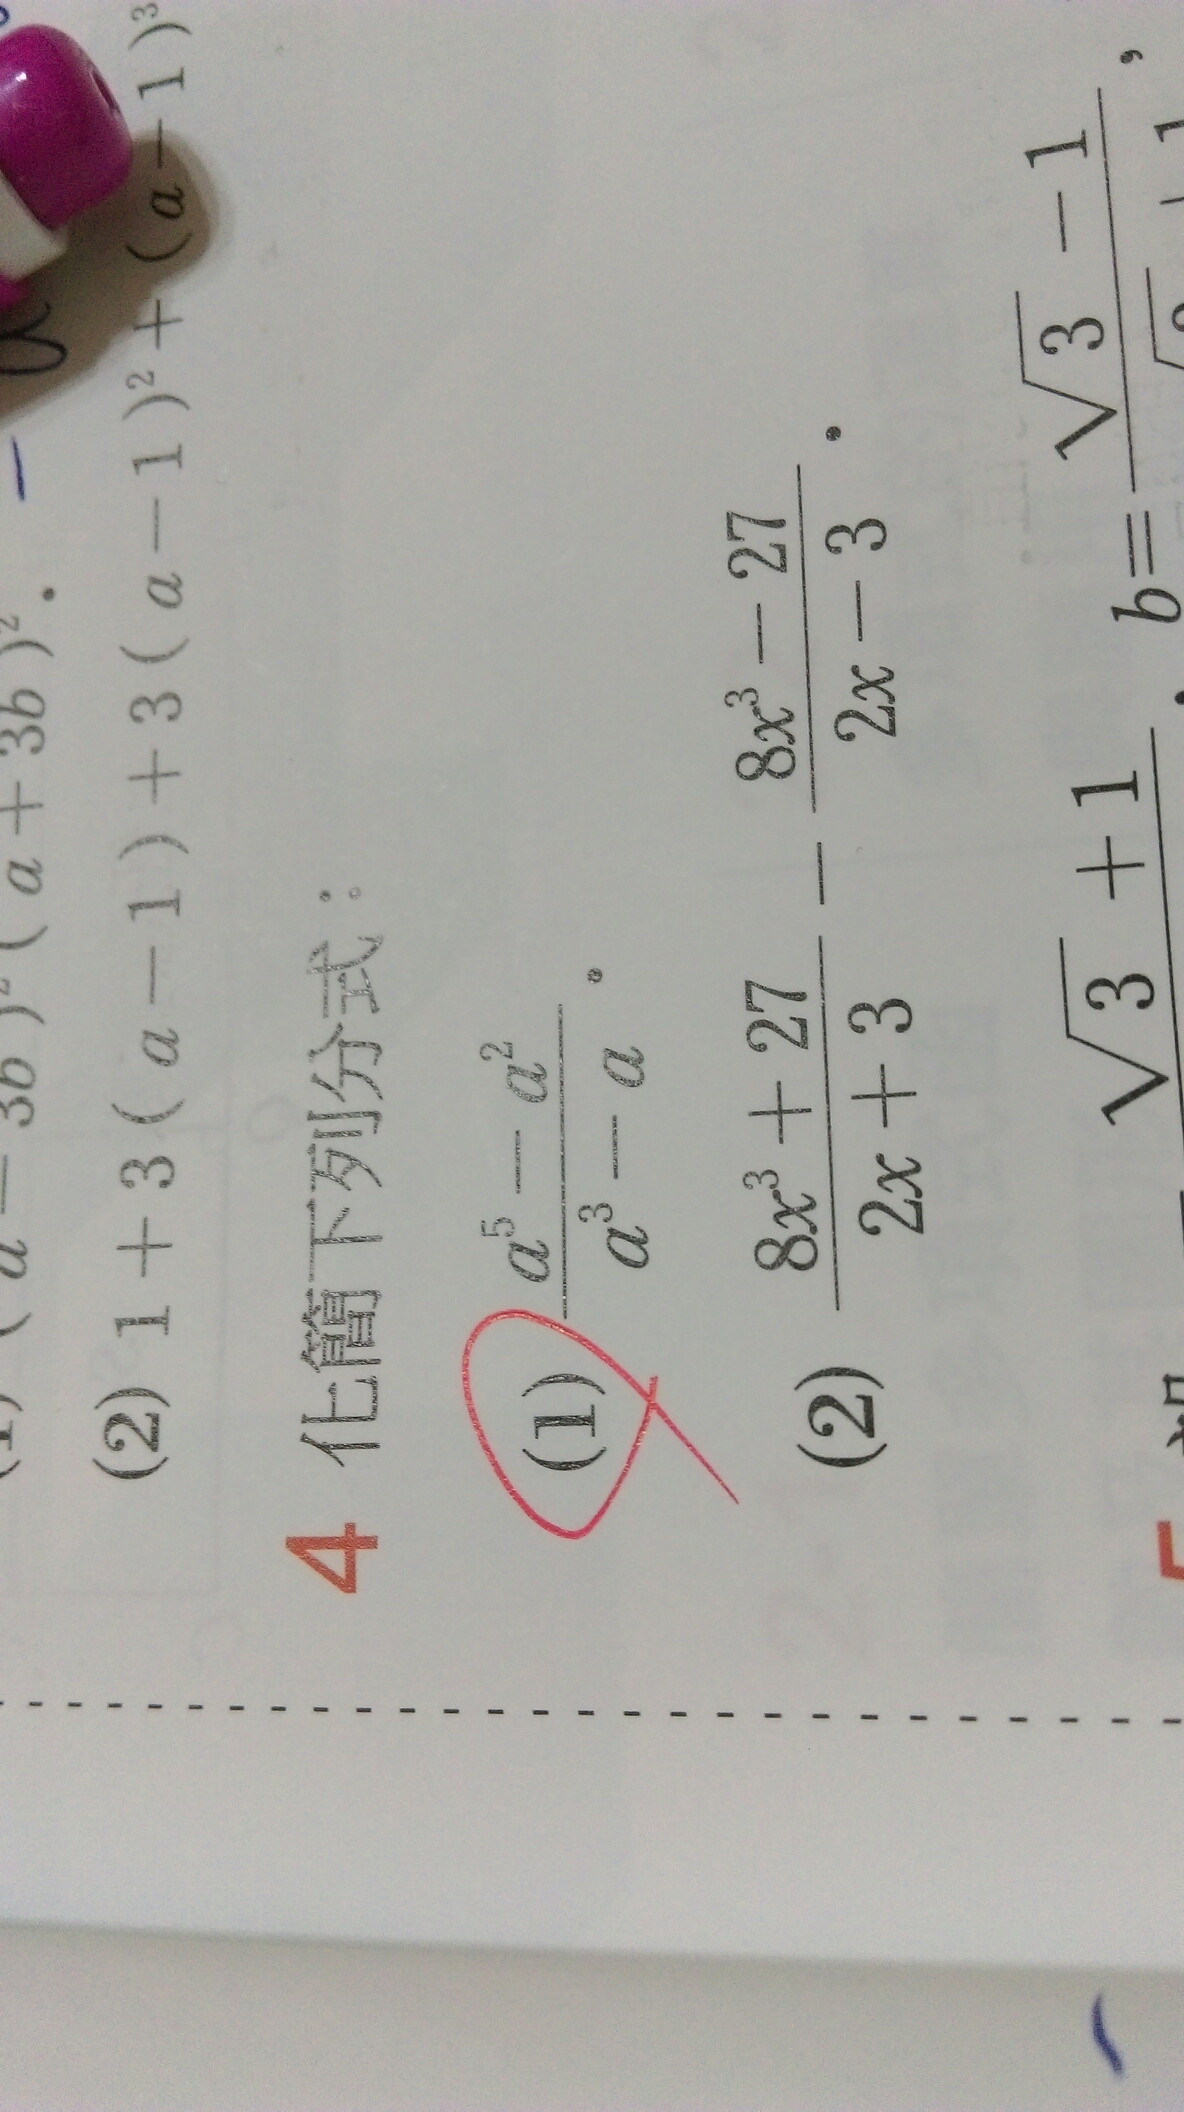 3b)²(a+3b)².
(2) 1+3(a−1)+3(a−1)²+(a−1)³
4 化簡下列分式：
(1) \frac{a⁵−a²}{a³−a}.
(2) \frac{8x³+27}{2x+3} − \frac{8x³−27}{2x−3}.
√3+1 , b= √3−1 ,